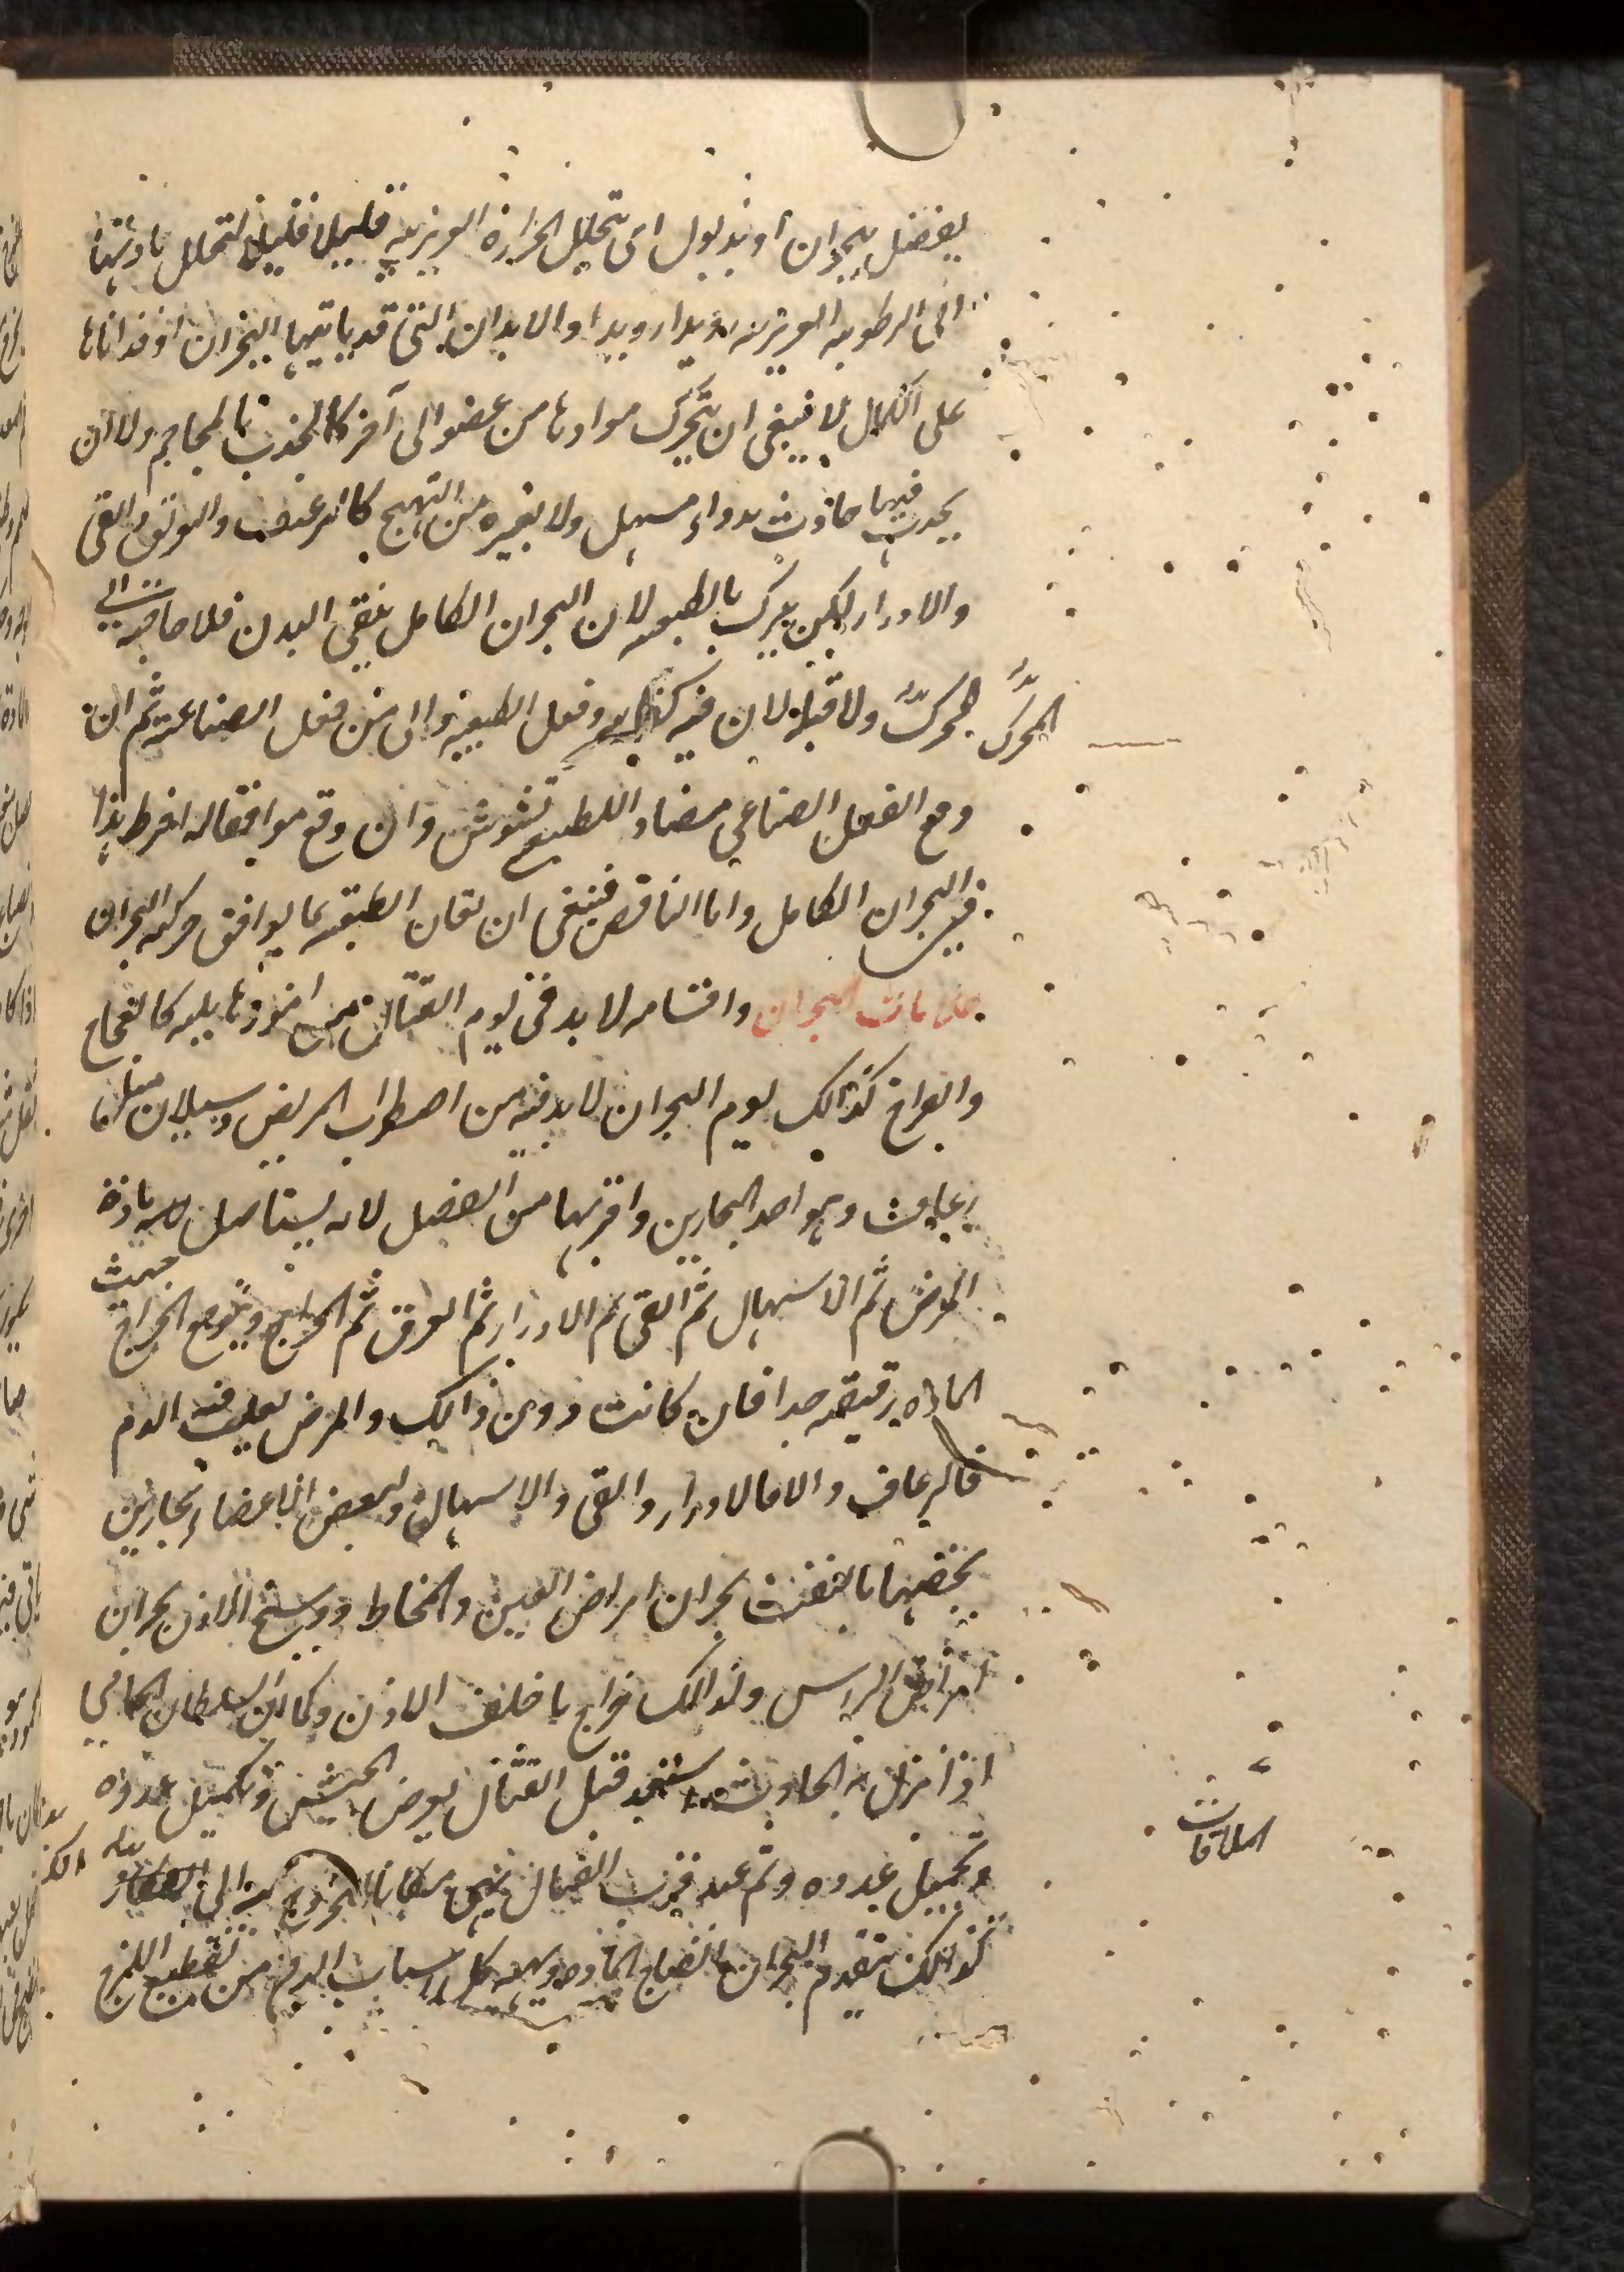 يفضل ببحران او بذبول اى تحلل الحرارة الغريزيه قليلا قليلا لتحلل مادتها
اى الرطوبه الغريزيه رويدا رويدا والابدان التى قد ياتيها البحران او قد اتاها
على الكمال لا ينبغى ان يتحرك موادها من عضو الى آخر كالجذب بالمحاجم ولا ان
يحدث فيها حادث بدواء مسهل ولا بغيره من التهيج كالرعاف والعرق والقى
والادرار لكن يترك بالطبيعه لان البحران الكامل ينقى البدن فلا حاجه الى
المحرك ولا قبله لان فيه وفعل الطبيعه اولى من فعل الصناعة ثم ان
وقع الفعل الصناعى مضادا للطبيع تشوش وان وقع موافقا له افرط هذا
فى البحران الكامل واما الناقص فينبغى ان تعان الطبيعه بما يوافق حركه البحران
علامات البحران واقسامه لا بد فى يوم القتال من امور هايله كالعجاج
والصراخ كذالك يوم البحران لا بد فيه من اضطراب المريض وسيلان مثل
رعاف وهو احد البحارين واقربها من الفضل لانه يستاصل مادة
المرض ثم الاسهال ثم القى ثم الادرار ثم العرق ثم الخراج ويتوقع الخراج حيث
الماده رقيقه جدا فان كانت دون ذالك والمرض يعلب فيه الدم
فالرعاف والا فالادرار والقى والاسهال ولبعض الاعضاء بحارين
يخصها فالنفث بحران امراض العين والمخاط ووسخ الاذن بحران
امراض الراس ولذالك خراج ما خلف الاذن وكما ان السلطان الحامى
اذا نزل به الحادث يستعد قبل القتال بعرض الجيش وتكميل عدده
وتجهيل عدوه وثم عند قرب القتال مكانا للخروج منه الى
كذالك يتقدم البحران انضاج الماده وتهيه كل اسباب الدفع من تقطيع اللزج
الملاقات